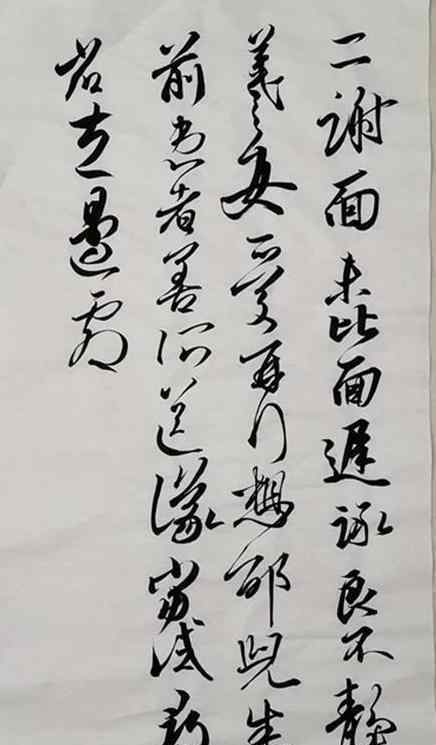 二謝面未比面遲詠良不靜
羲之女愛再拜想邰兒
前患者善所送議當試尋
左邊劇